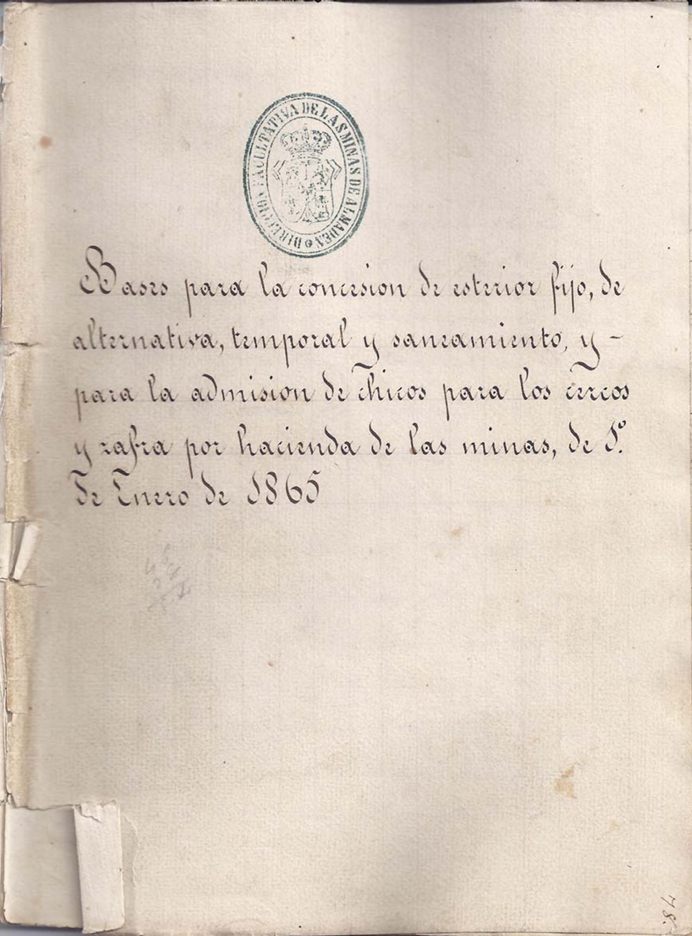 DIRECCION FACULTATIVA DE LAS MINAS DE ALMADEN
Bases para la concesion de esterior fijo, de
alternativa, temporal y saneamiento, y -
para la admision de chicos para los cercos
y zafra por hacienda de las minas, de 1º.
de Enero de 1865
78.